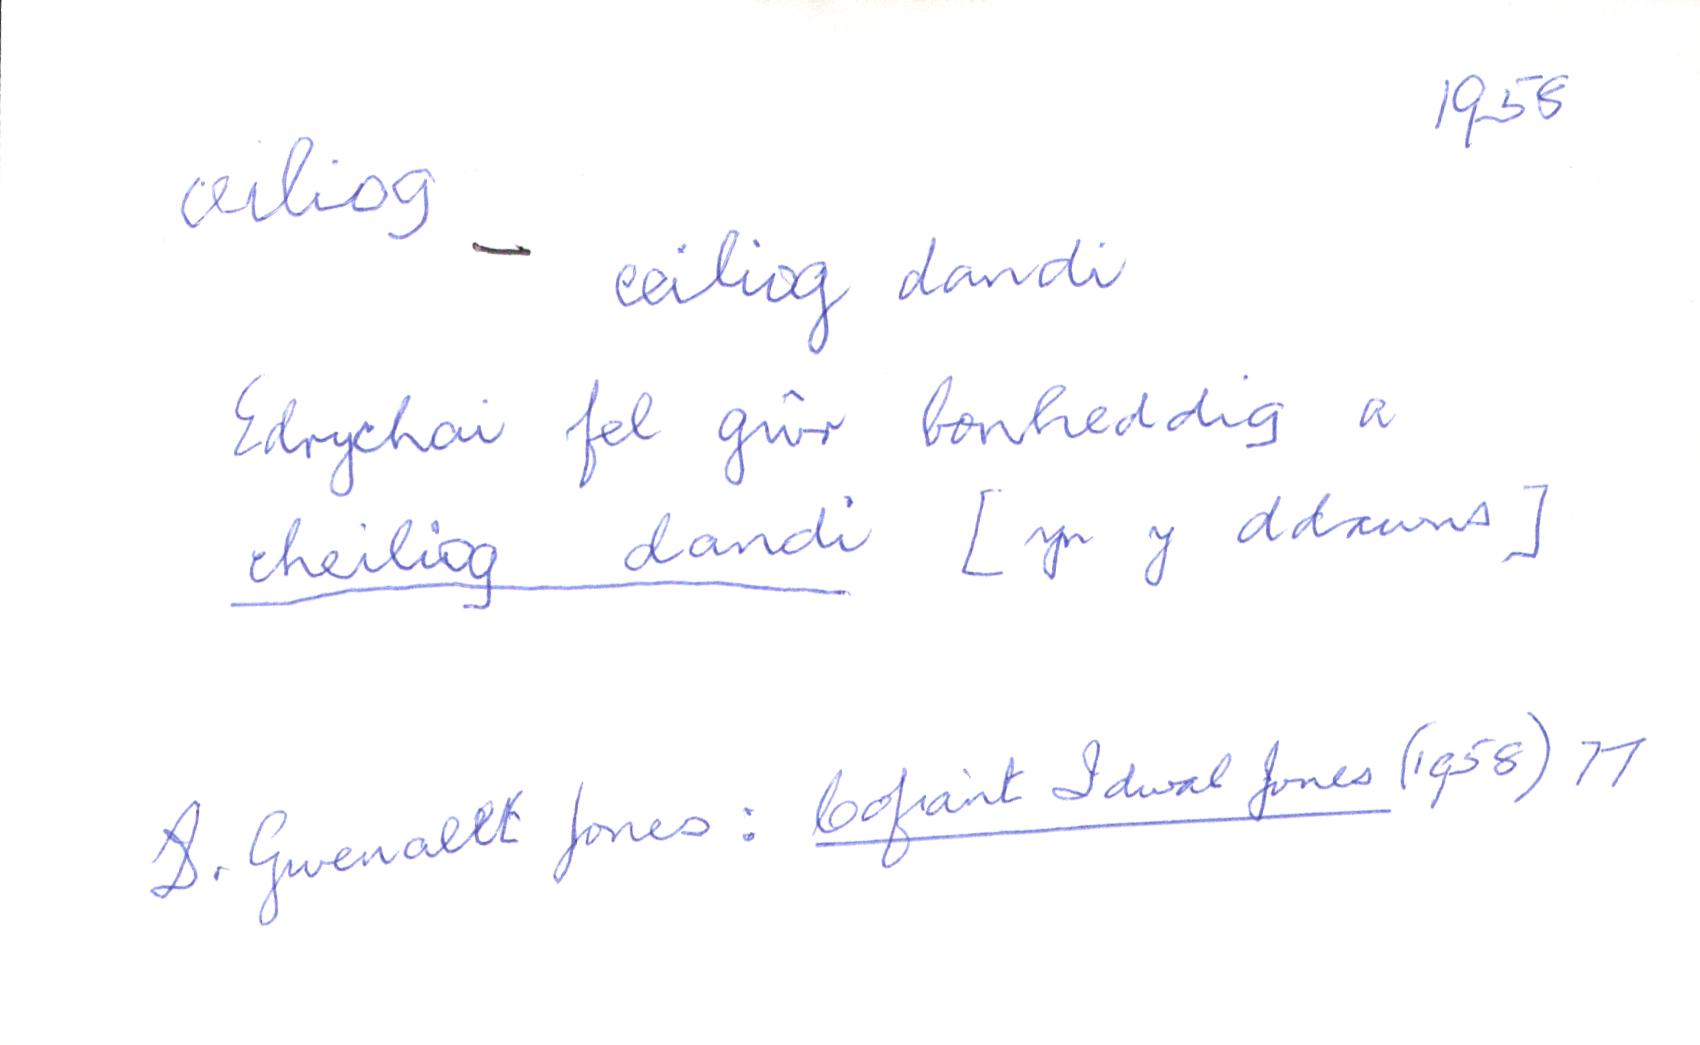 1958
ceiliog –
ceiliog dandi
Edrychai fel gŵr bonheddig a
cheiliog dandi [yn y ddawns]
D. Gwenallt Jones: Cofiant Idwal Jones (1958) 77